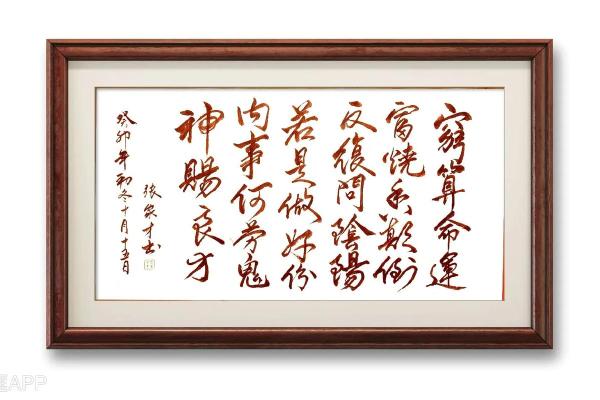 窮算命運
富燒香顛倒
反復問陰陽
若是做好份
内事何勞鬼
神賜良方
癸卯年初冬十月十五日
張才书
EAPP